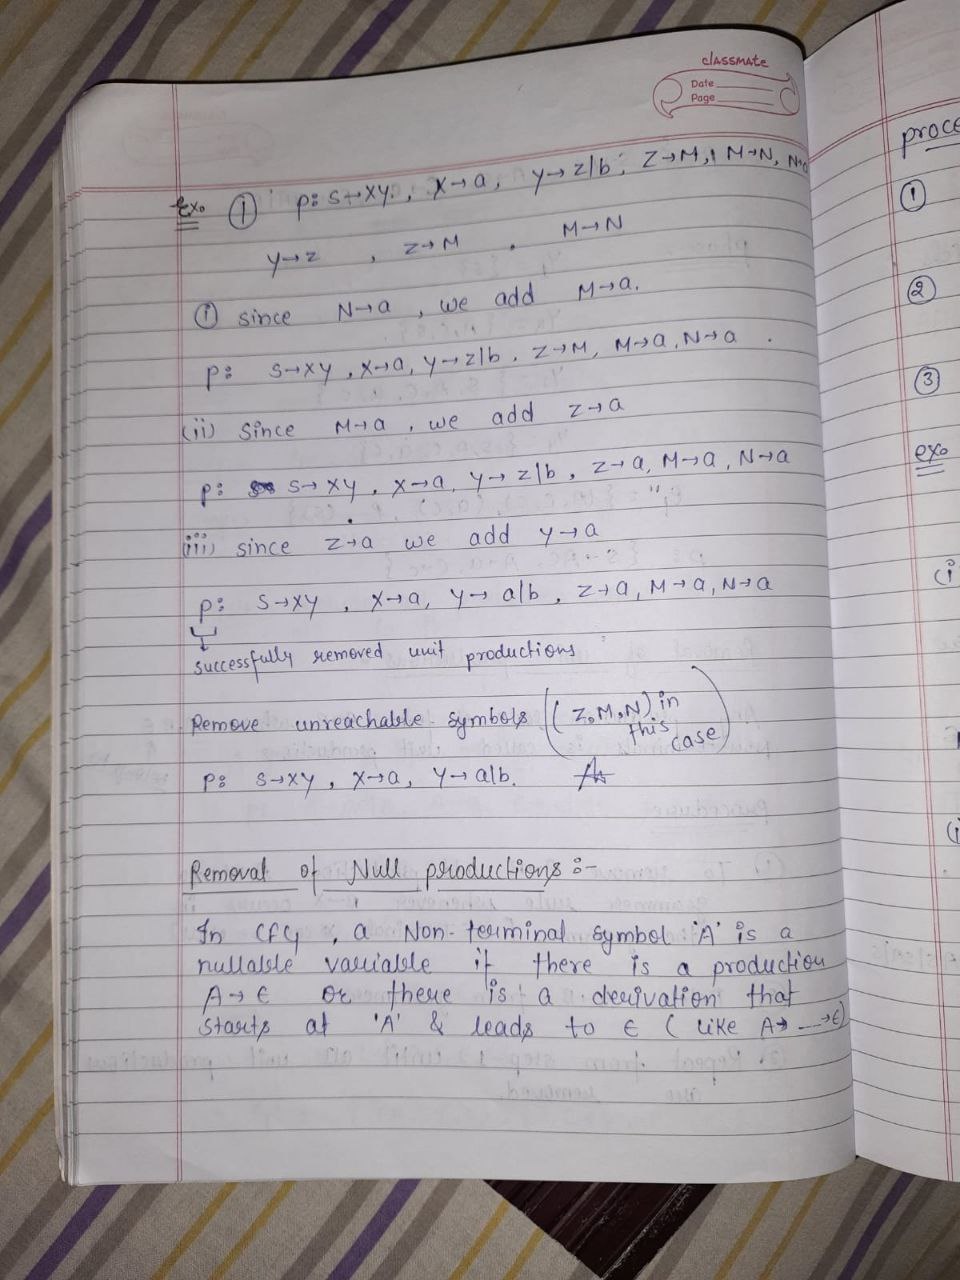 classmate
Date
Page
Ex. ① P: S→XY, X→a, Y→Z|b, Z→M, M→N, N→a
Y→Z , Z→M , M→N
① since N→a , we add M→a.
P: S→XY, X→a, Y→Z|b, Z→M, M→a, N→a
(ii) Since M→a, we add Z→a
P: S→XY, X→a, Y→Z|b, Z→a, M→a, N→a
(iii) since Z→a we add Y→a
P: S→XY, X→a, Y→a|b, Z→a, M→a, N→a
successfully removed unit productions
Remove unreachable symbols (Z, M, N) in
this
case
P: S→XY, X→a, Y→a|b.
Removal of Null productions :-
In CFG, a Non-terminal symbol 'A' is a
nullable variable if there is a production
A→ϵ or there is a derivation that
starts at 'A' & leads to ϵ (like A→ ...→ϵ)
proce
①
②
③
ex.
(i
(i